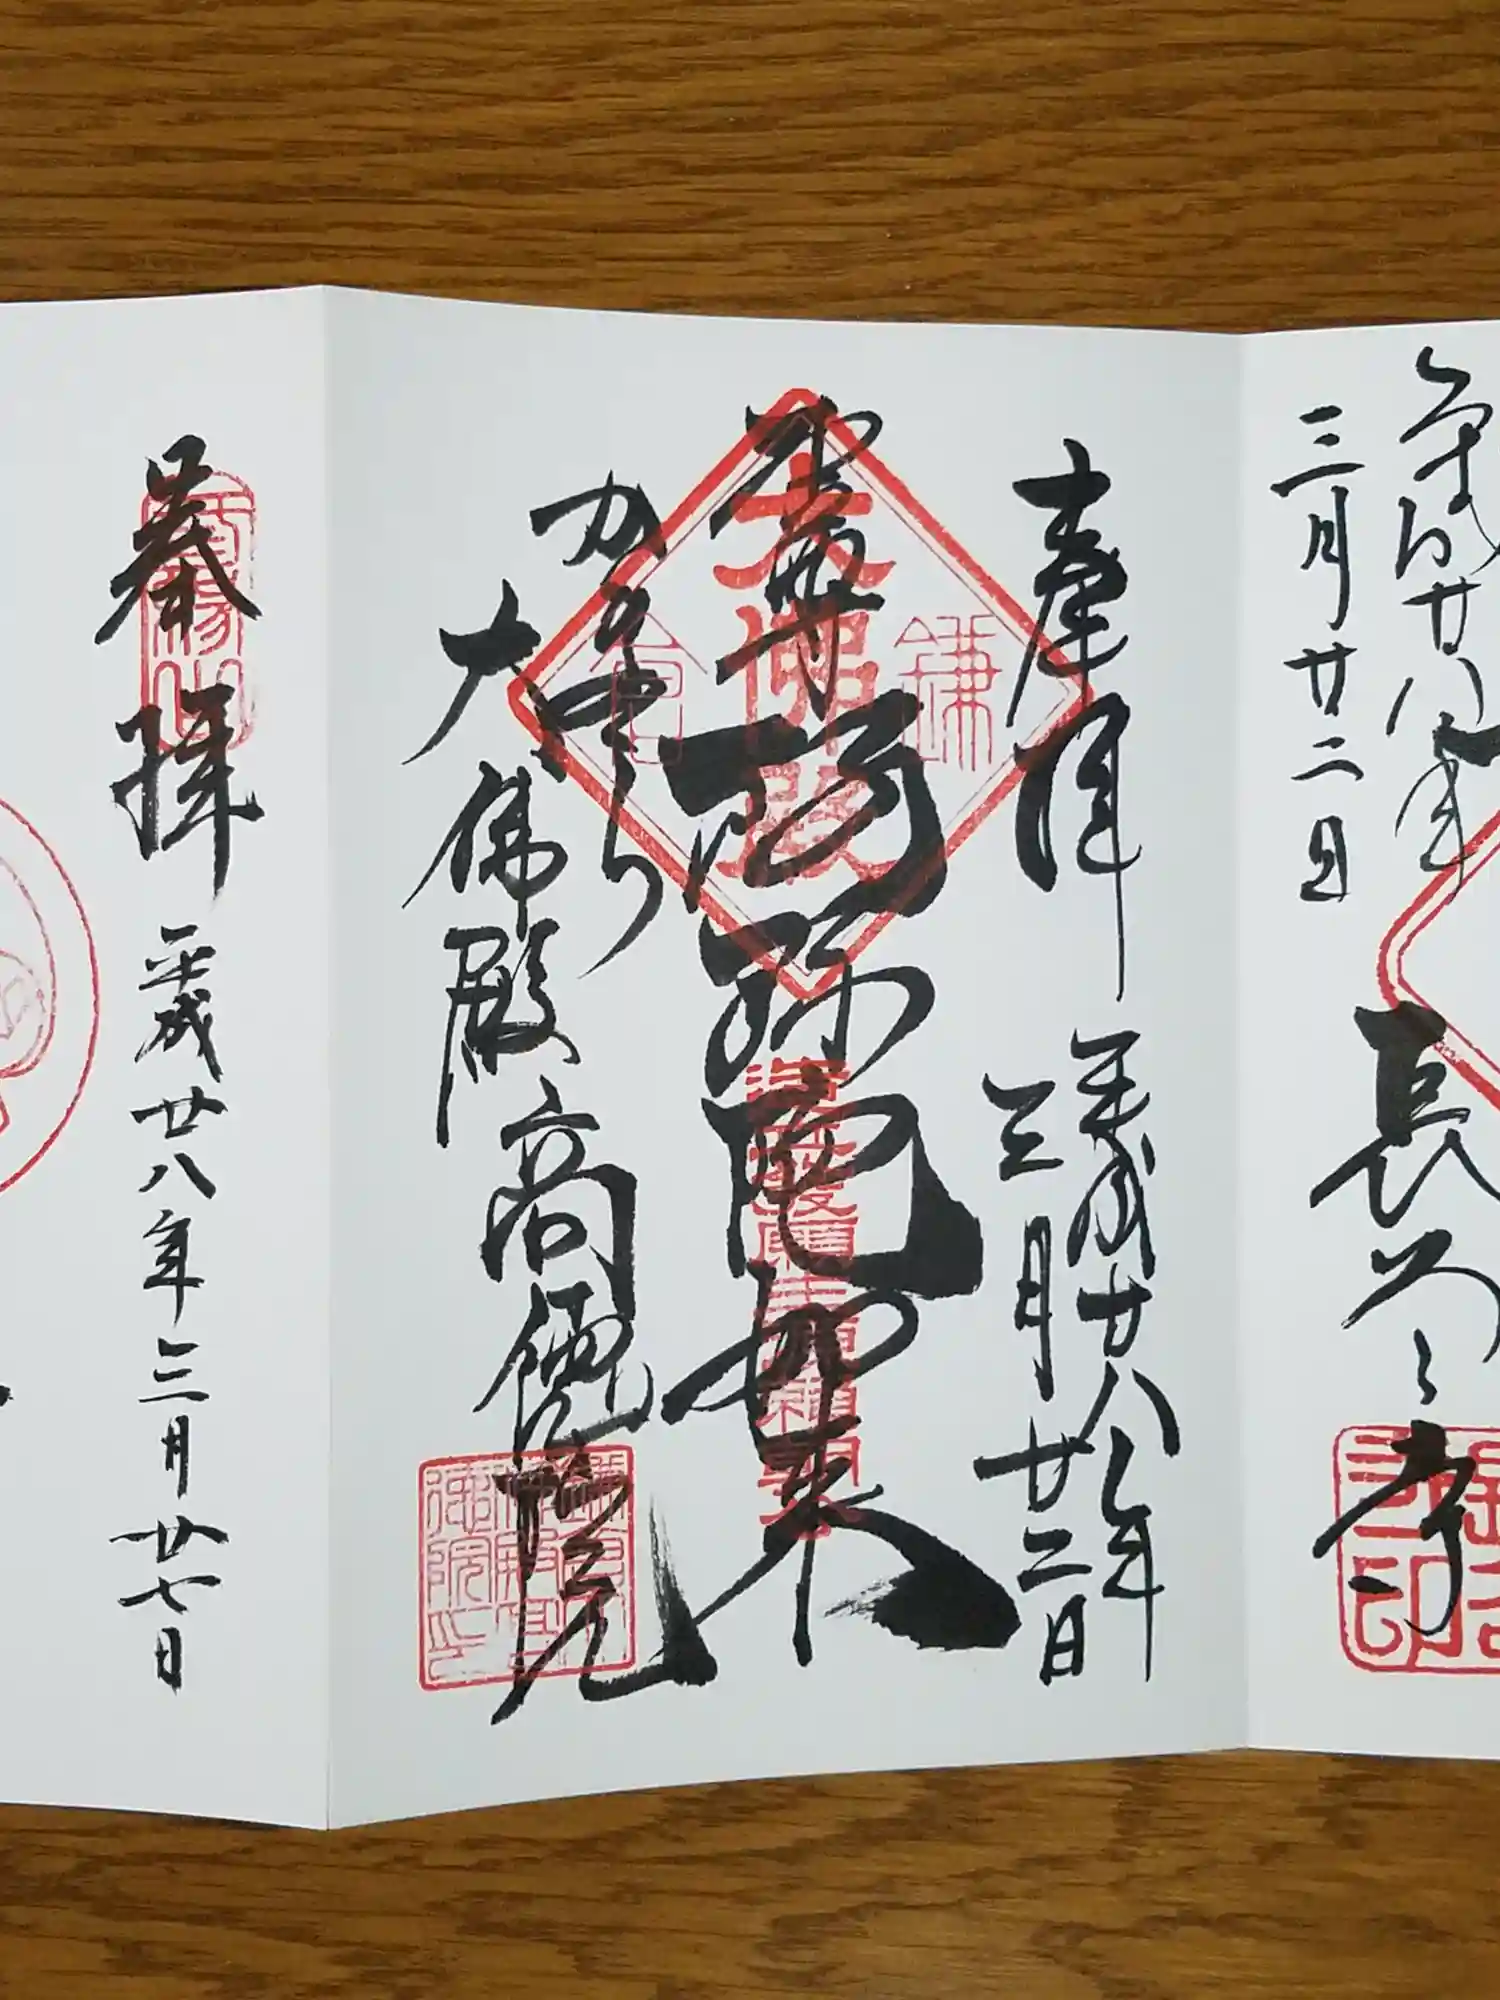 平成廿八年
三月廿二日
長谷寺
奉拝
平成廿八年
三月廿二日
本尊
阿弥陀如来
大佛殿
鎌
倉
かまくら
大佛殿 高徳院
奉拝 平成廿八年三月廿七日